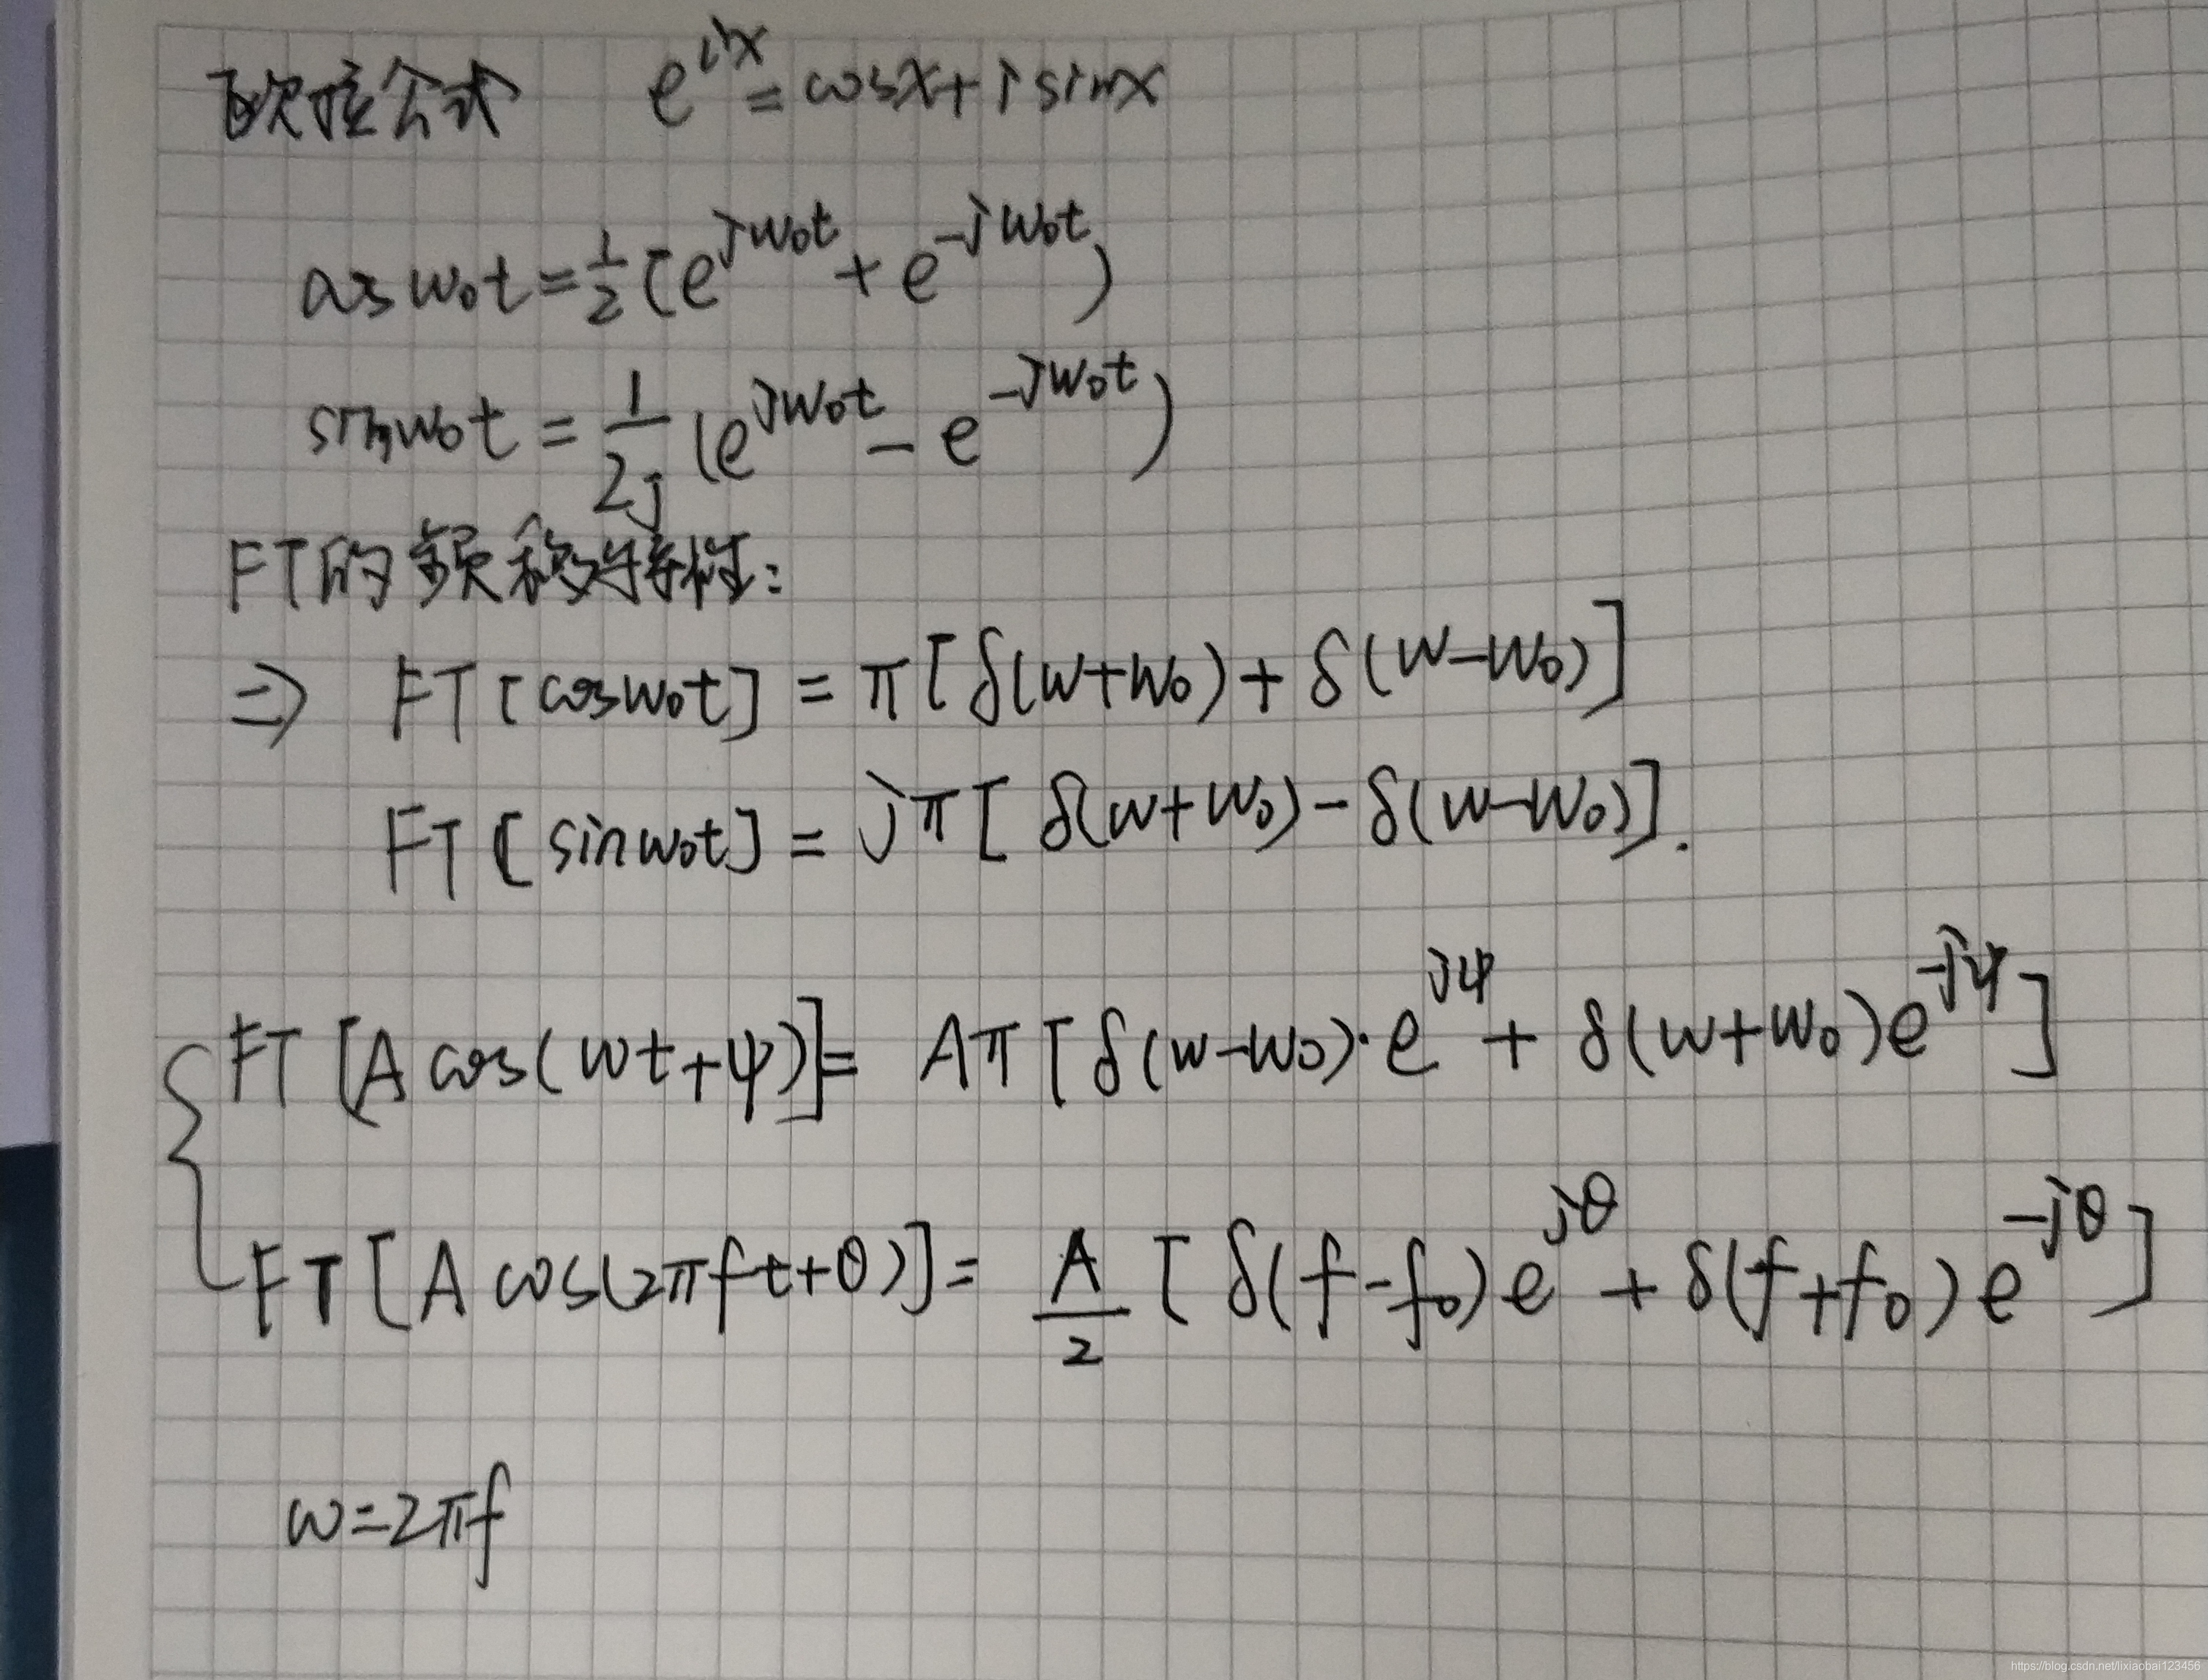 欧拉公式 e^{ix} = cosx + i sinx
cosw₀t = 1/2 (e^{jw₀t} + e^{-jw₀t})
sinw₀t = 1/2j (e^{jw₀t} - e^{-jw₀t})
FT的频移特性:
⇒ FT[cosw₀t] = π[δ(w+w₀) + δ(w-w₀)]
FT[sinw₀t] = jπ[δ(w+w₀) - δ(w-w₀)].
FT[A cos(wt+ψ)] = Aπ[δ(w-w₀)·e^{jψ} + δ(w+w₀)e^{-jψ}]
FT[A cos(2πft+θ)] = A/2 [δ(f-f₀)e^{jθ} + δ(f+f₀)e^{-jθ}]
w=2πf
https://blog.csdn.net/lixiaobai123456